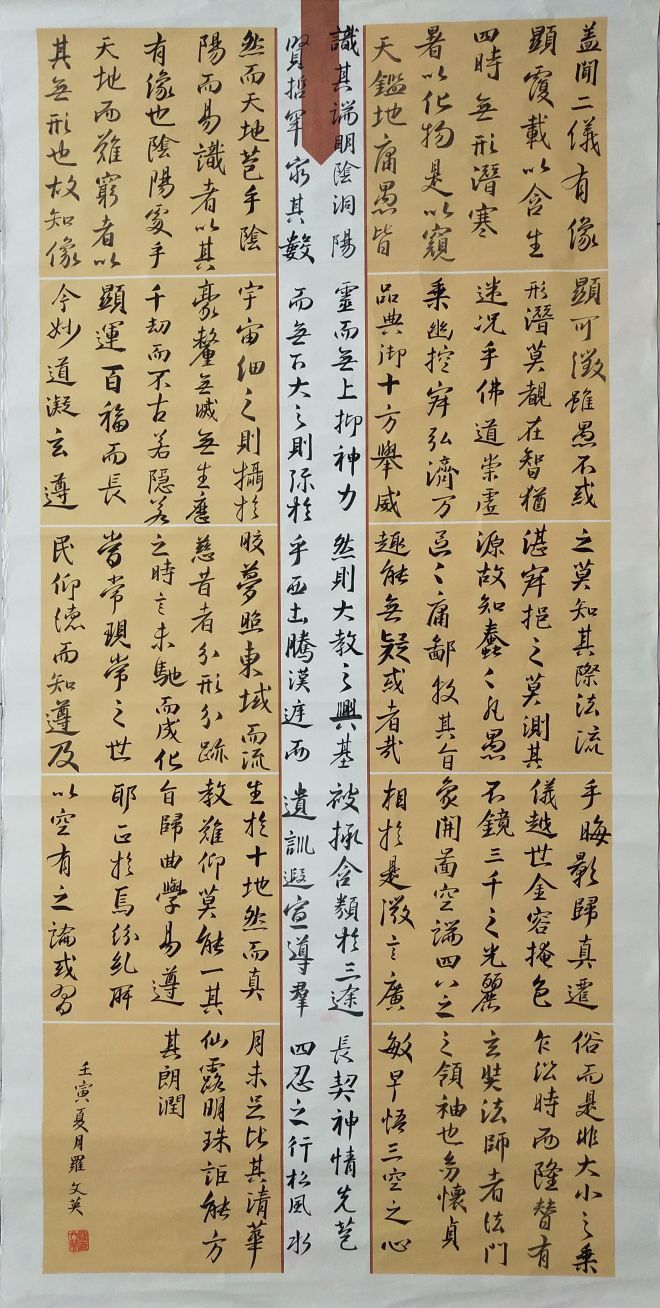 盖聞二儀有像
顯覆載以含生
四時無形潛寒
暑以化物是以窺
天鑑地庸愚皆
識其端明陰洞陽
賢哲罕窮其數
然而天地苞乎陰
陽而易識者以其
有像也陰陽處乎
天地而難窮者以
其無形也故知像
顯可徵雖愚不惑
形潛莫覩在智猶
迷況乎佛道崇虛
乘幽控寂弘濟万
品典御十方舉威
靈而無上抑神力
而無下大之則彌於
宇宙細之則攝於
豪釐無滅無生歷
千劫而不古若隱若
顯運百福而長
今妙道凝玄遵
之莫知其際法流
湛寂挹之莫測其
源故知蠢々凡愚
區々庸鄙投其旨
趣能無疑或者哉
然則大教之興基
乎西土騰漢庭而
皎夢照東域而流
慈昔者分形分跡
之時言未馳而成化
當常現常之世
民仰德而知遵及
乎晦影歸真遷
儀越世金容掩色
不鏡三千之光麗
象開圖空端四八之
相於是微言廣
被拯含類於三途
遺訓遐宣導羣
生於十地然而真
教難仰莫能一其
旨歸曲學易遵
耶正於焉紛糺所
以空有之論或習
俗而是非大小之乘
乍沿時而隆替有
玄奘法師者法門
之領袖也幼懷貞
敏早悟三空之心
長契神情先苞
四忍之行松風水
月未足比其清華
仙露明珠詎能方
其朗潤
壬寅夏月羅文英